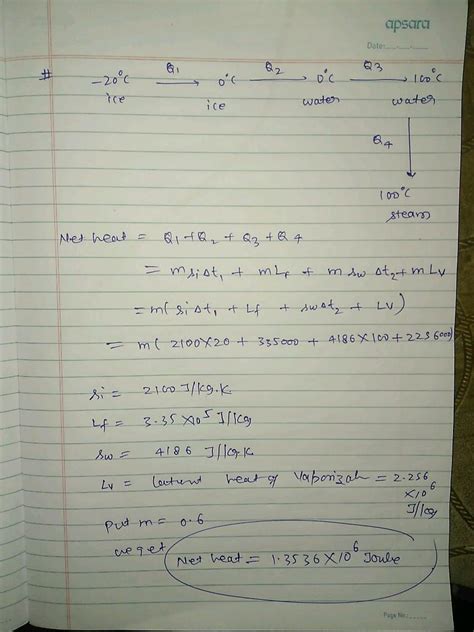 apsara
Date:
# -20°C Q1 → 0°C Q2 → 0°C Q3 → 100°C
ice ice water water
Q4
100°C
steam
Net heat = Q1+Q2 + Q3 + Q4
= m si Δt1 + m Lf + m sw Δt2 + m Lv
= m( si Δt1 + Lf + sw Δt2 + Lv)
= m( 2100×20 + 335000 + 4186×100 + 2256000)
si = 2100 J/kg.K
Lf = 3.35 ×10^5 J/kg
sw = 4186 J/kg.K
Lv = latent heat of vaporizah = 2.256
×10^6
J/kg
put m = 0.6
we get
Net heat = 1.3536 × 10^6 Joule
Page No.: